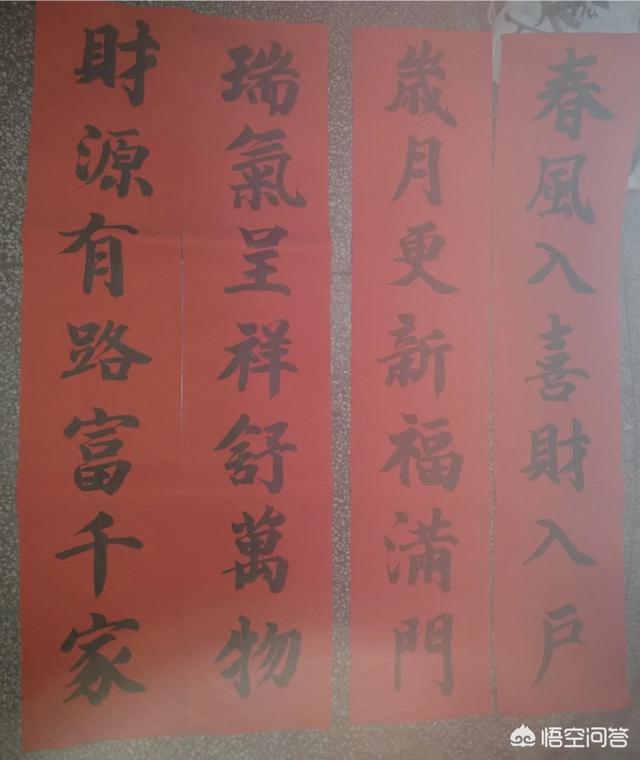 春風入喜財入户
歲月更新福滿門
瑞氣呈祥舒萬物
財源有路富千家
悟空问答